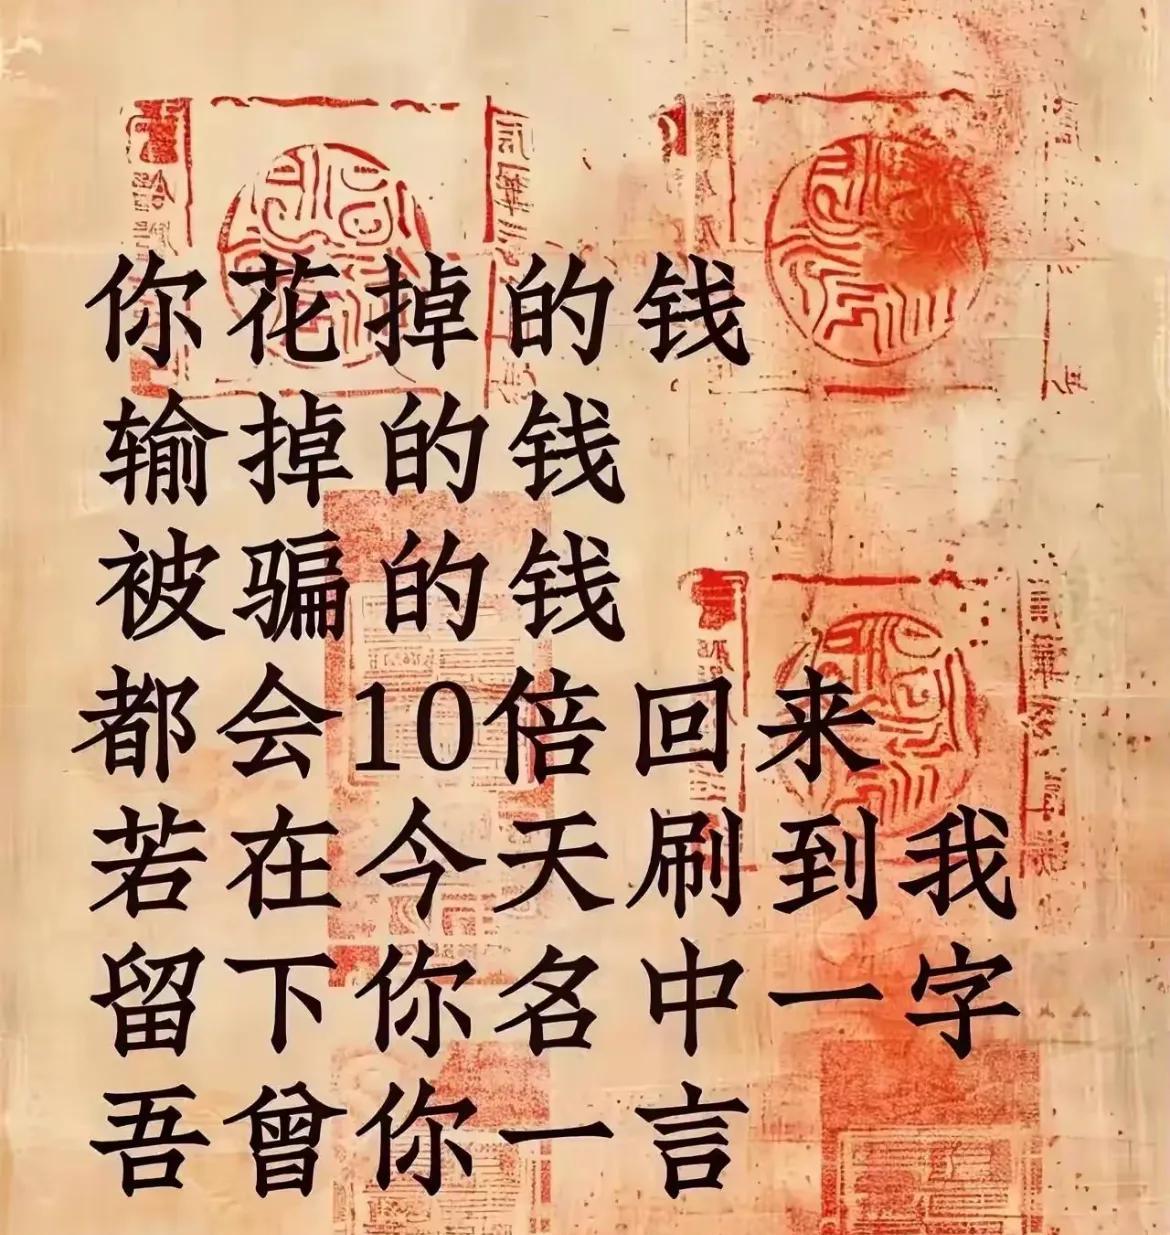 你花掉的钱
输掉的钱
被骗的钱
都会10倍回来
若在今天刷到我
留下你名中一字
吾曾你一言